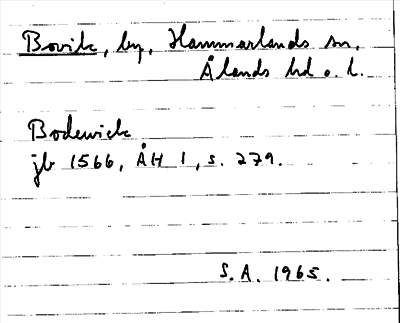 Bovik, by, Hammarlands sn,
Ålands hd o. l.
Bodewick
jb 1566, ÅH 1, s. 279.
S.A. 1965.